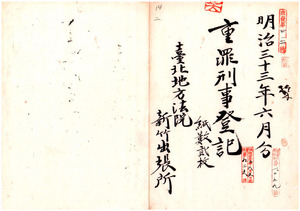 明治三十三年六月分
重罪刑事登記
紙數貳枚
臺北地方法院
新竹出張所